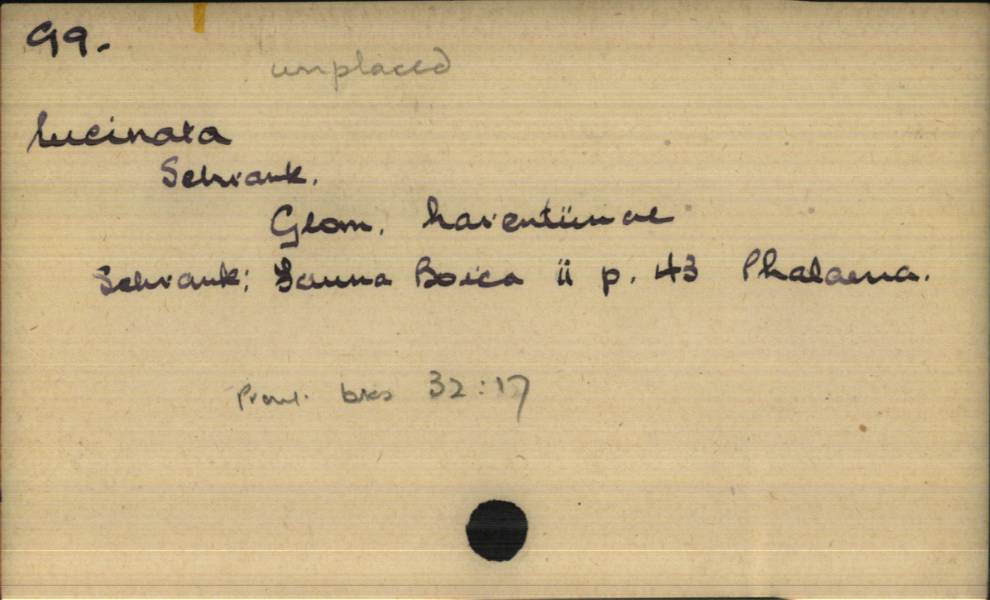 99.
unplaced
lucinata
Schrank.
Geom. Larentiinae
Schrank; Fauna Boica ii p. 43 Phalaena.
Prout. bks 32:17